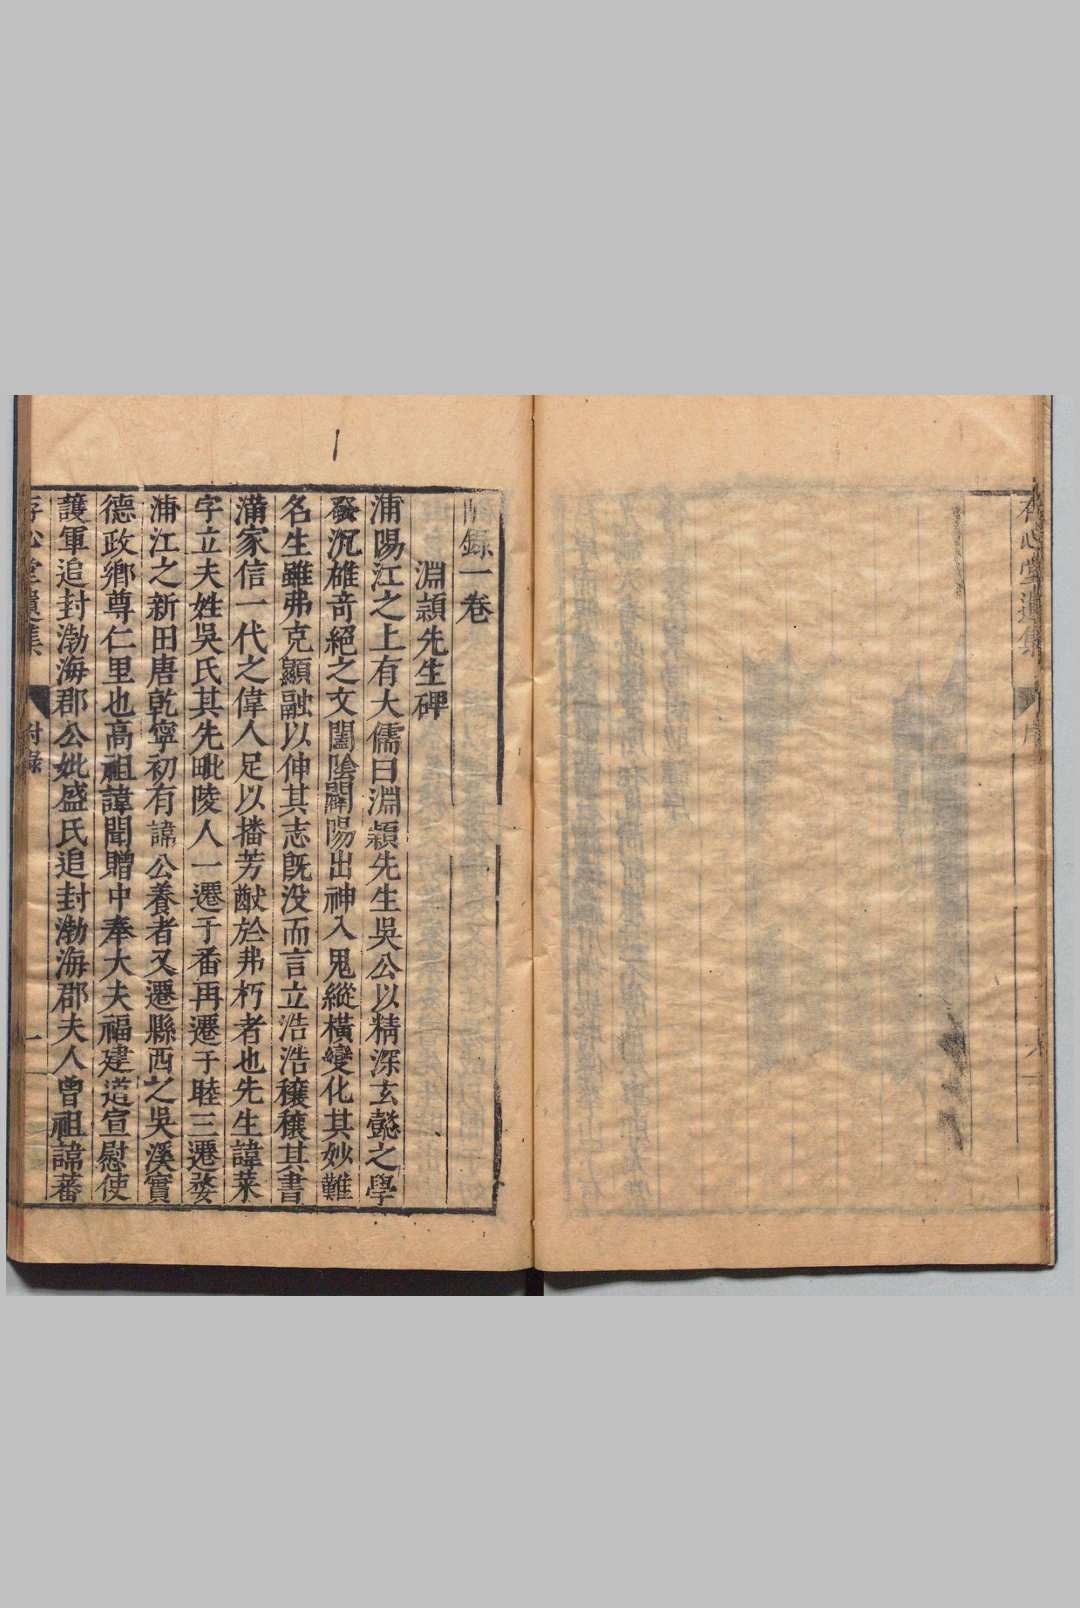 存心堂遺集
序
附錄一卷
淵頴先生碑
浦陽江之上有大儒曰淵穎先生吳公以精深玄懿之學
發沉雄竒絕之文闔陰闢陽出神入鬼縱橫變化其妙難
名生雖弗克顯融以伸其志旣没而言立浩浩穰穰其書
滿家信一代之偉人足以播芳猷於弗朽者也先生諱萊
字立夫姓吳氏其先毗陵人一遷于番再遷于睦三遷婺
浦江之新田唐乾寧初有諱公養者又遷縣西之吳溪實
德政鄉尊仁里也高祖諱聞贈中奉大夫福建道宣慰使
護軍追封渤海郡公妣盛氏追封渤海郡夫人曾祖諱蕃
存心堂遺集
附錄
一